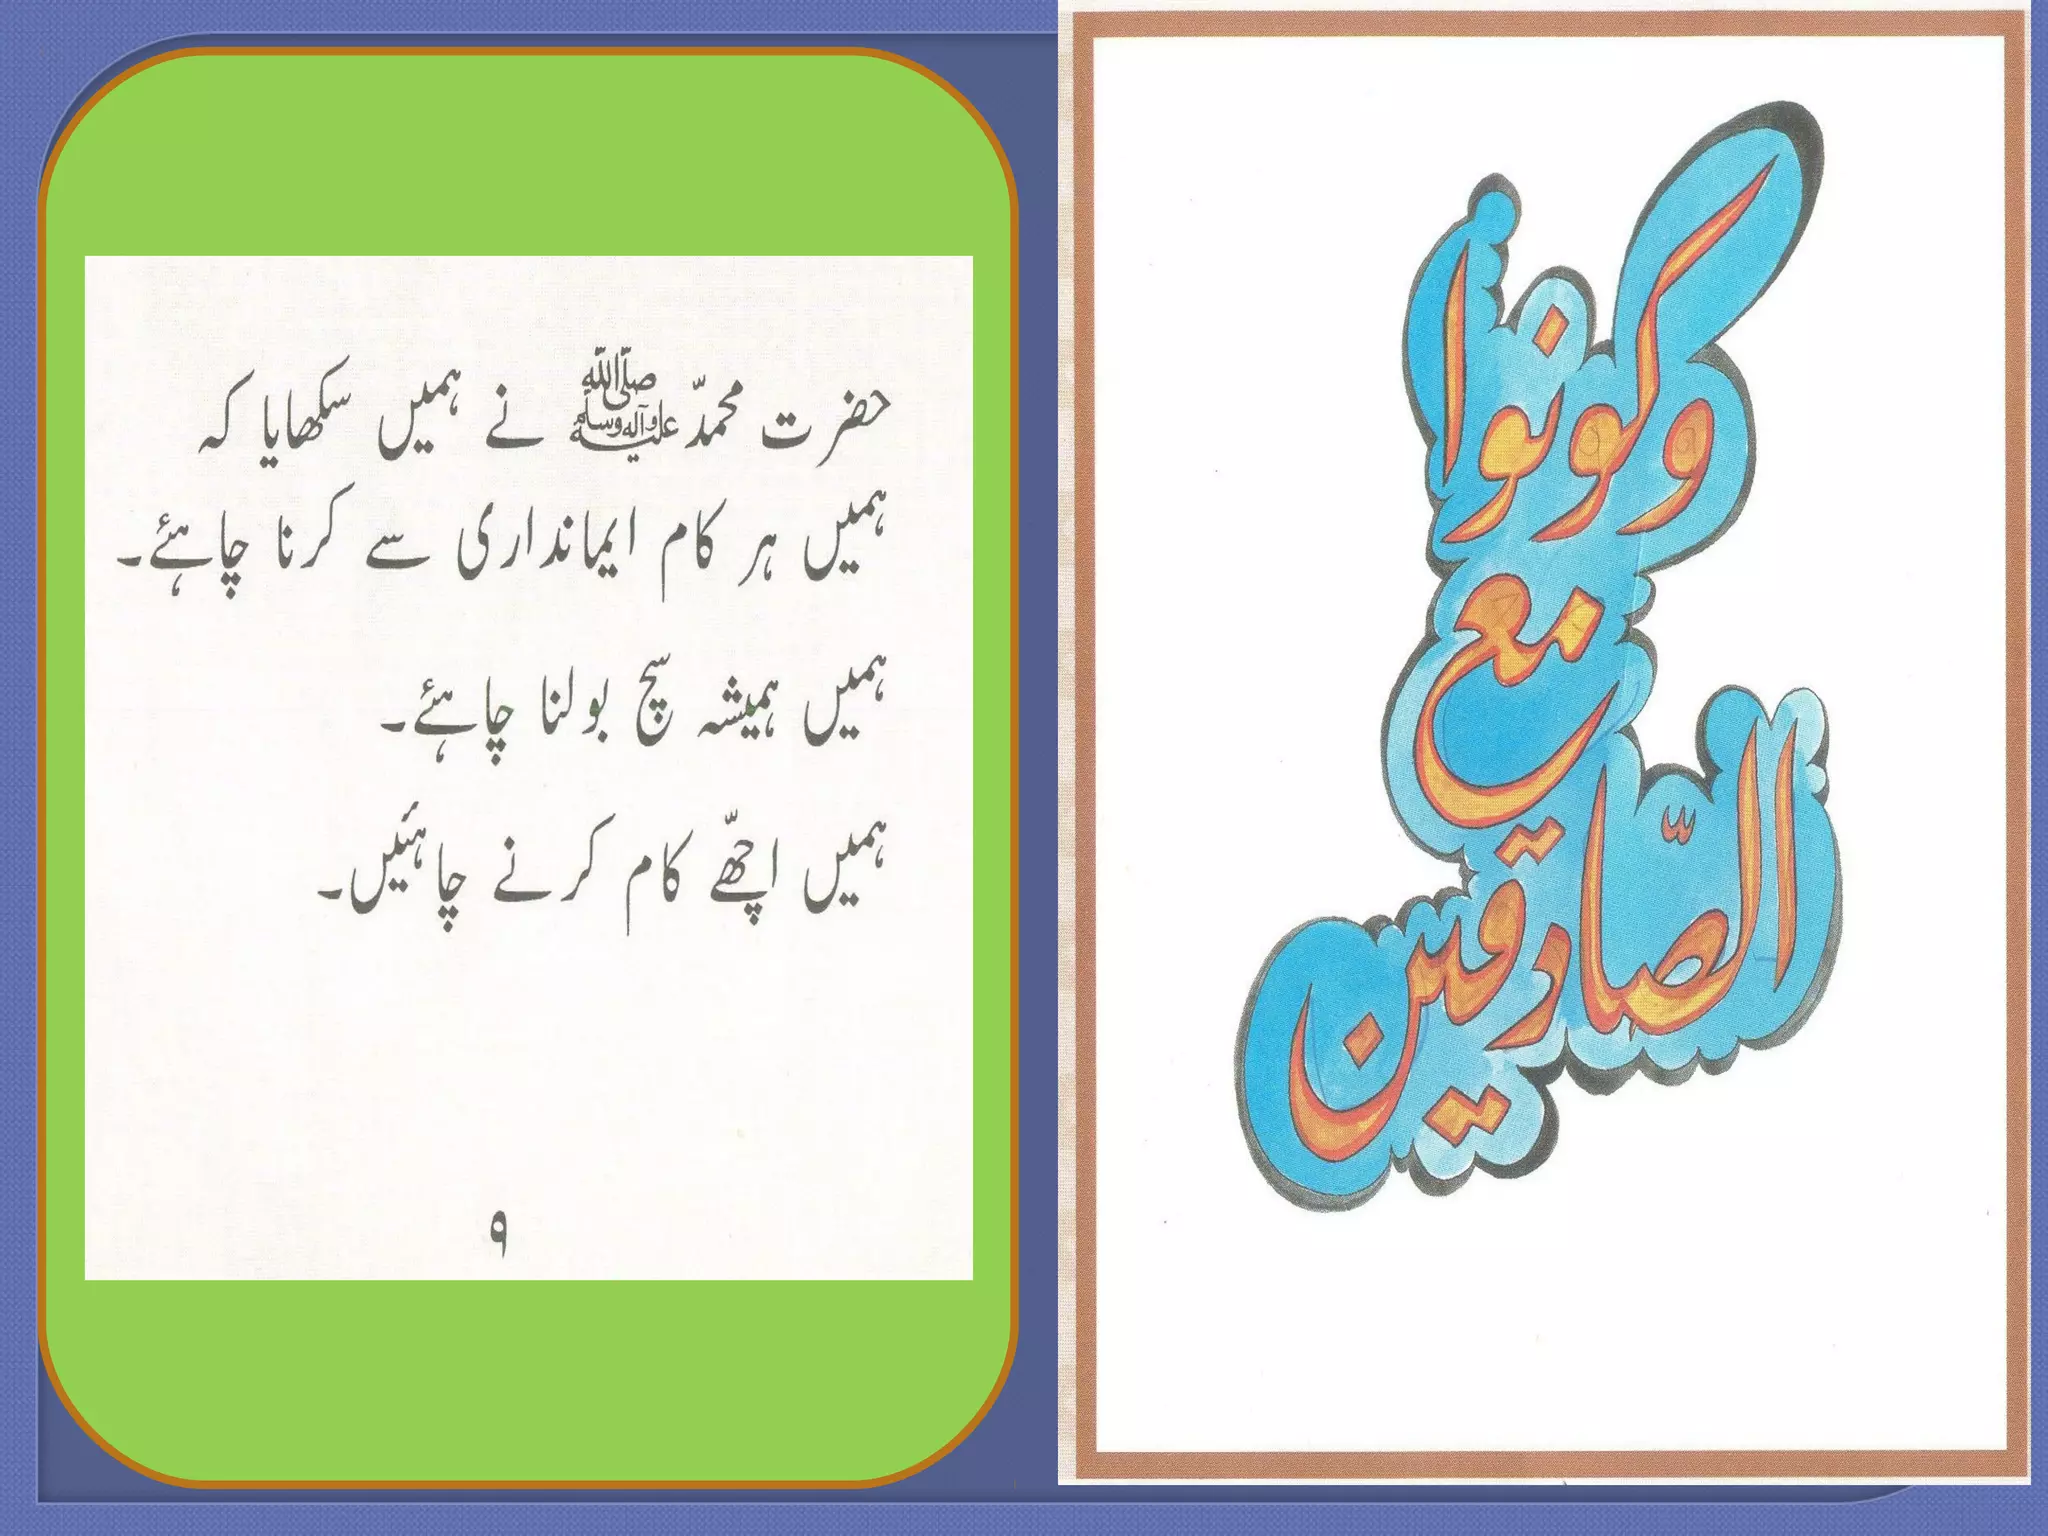 حضرت محمدّ صلی اللہ علیہ وآلہ وسلم نے ہمیں سکھایا کہ
ہمیں ہر کام ایمانداری سے کرنا چاہئے۔
ہمیں ہمیشہ سچ بولنا چاہئے۔
ہمیں اچھّے کام کرنے چاہئیں۔
۹
وکونوا
مع
الصّادقین